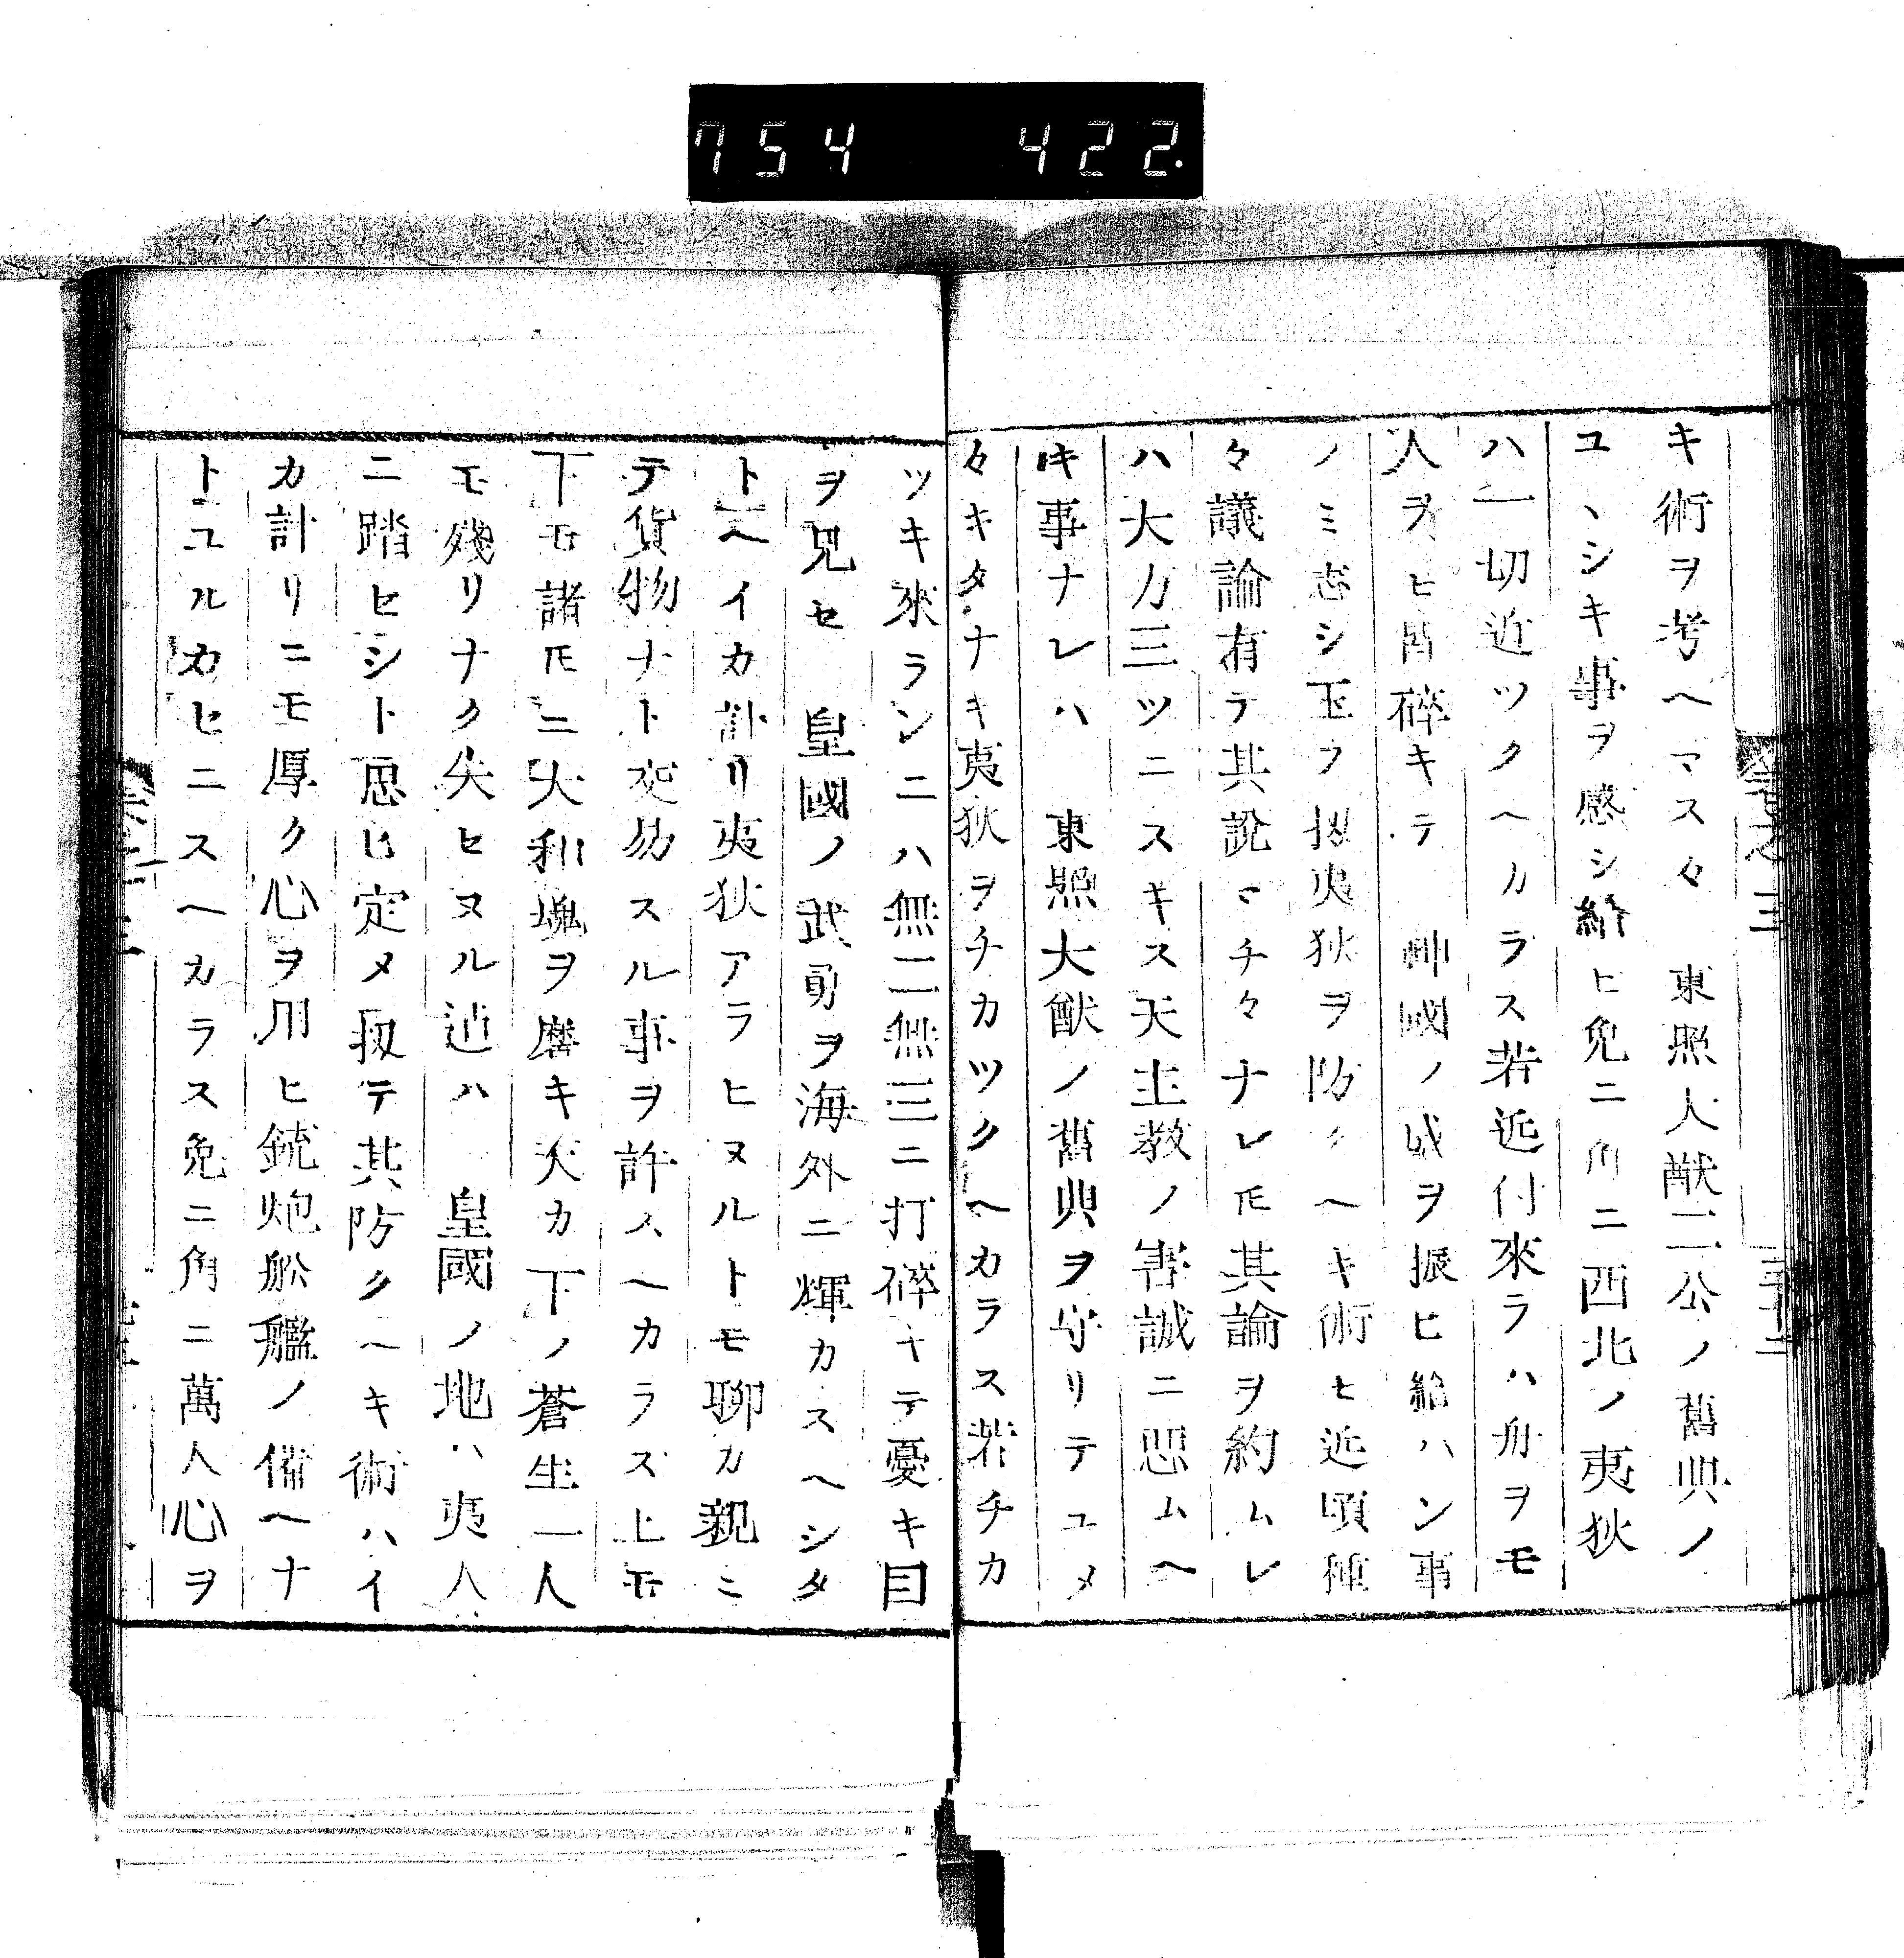 754 422.
キ術ヲ考ヘマス々 東照大猷二公ノ舊典ノ
ユヽシキ事ヲ感シ給ヒ免ニ角ニ西北ノ夷狄
ハ一切近ツクヘカラス若近付來ラハ舟ヲモ
人ヲヒ 碎キテ 神國ノ威ヲ振ヒ給ハン事
ノミ志シ玉フ 夷狄ヲ防クヘキ術ヒ近頃種
々議論有テ其説マチ々ナレㇳモ其論ヲ約ムレ
ハ大カ三ツニスキス天主教ノ害誠ニ惡ムヘ
キ事ナレハ 東照大猷ノ舊典ヲ守リテユメ
々キタナキ夷狄ヲチカツクヘカラス若チカ
ツキ來ランニハ無二無三ニ打碎キテ憂キ目
ヲ見セ 皇國ノ武勇ヲ海外ニ輝カスヘシタ
トヘイカ計リ夷狄アラヒヌルトモ聊カ親ミ
テ貨物ナト交易スル事ヲ許スヘカラス上モ
下モ諸ㇳモニ大和魂ヲ磨キ天カ下ノ蒼生一人
モ殘リナク失ヒヌル迠ハ 皇國ノ地ハ夷人
ニ踏セシト思ヒ定メ扨テ其防クヘキ術ハイ
カ計リニモ厚ク心ヲ用ヒ銃炮舩艦ノ備ヘナ
トユルカセニスヘカラス免ニ角ニ萬人心ヲ